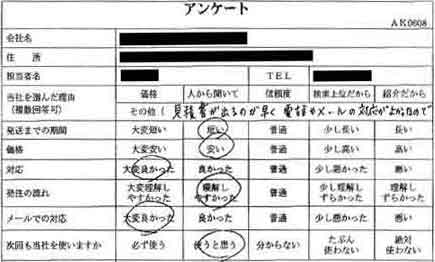 アンケート
AK0608
会社名
住 所
担当者名 TEL
当社を選んだ理由 価格 人から聞いて 信頼度 検索上位だから 紹介だから
(複数回答可) その他 ( 見積書が出るのが早く 電話やメールの対応がよかったので
発送までの期間 大変短い 短い 普通 少し長い 長い
価格 大変安い 安い 普通 少し高い 高い
対応 大変良かった 良かった 普通 少し悪かった 悪い
発注の流れ 大変理解しやすかった 理解しやすかった 普通 少し理解しずらかった 理解しずらかった
メールでの対応 大変良かった 良かった 普通 少し悪かった 悪い
次回も当社を使いますか 必ず使う 使うと思う 分からない たぶん使わない 絶対使わない